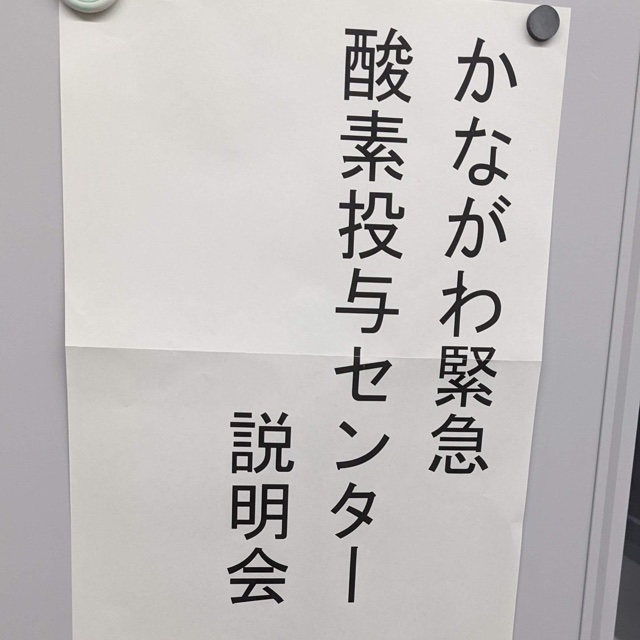 かながわ緊急
酸素投与センター
説明会